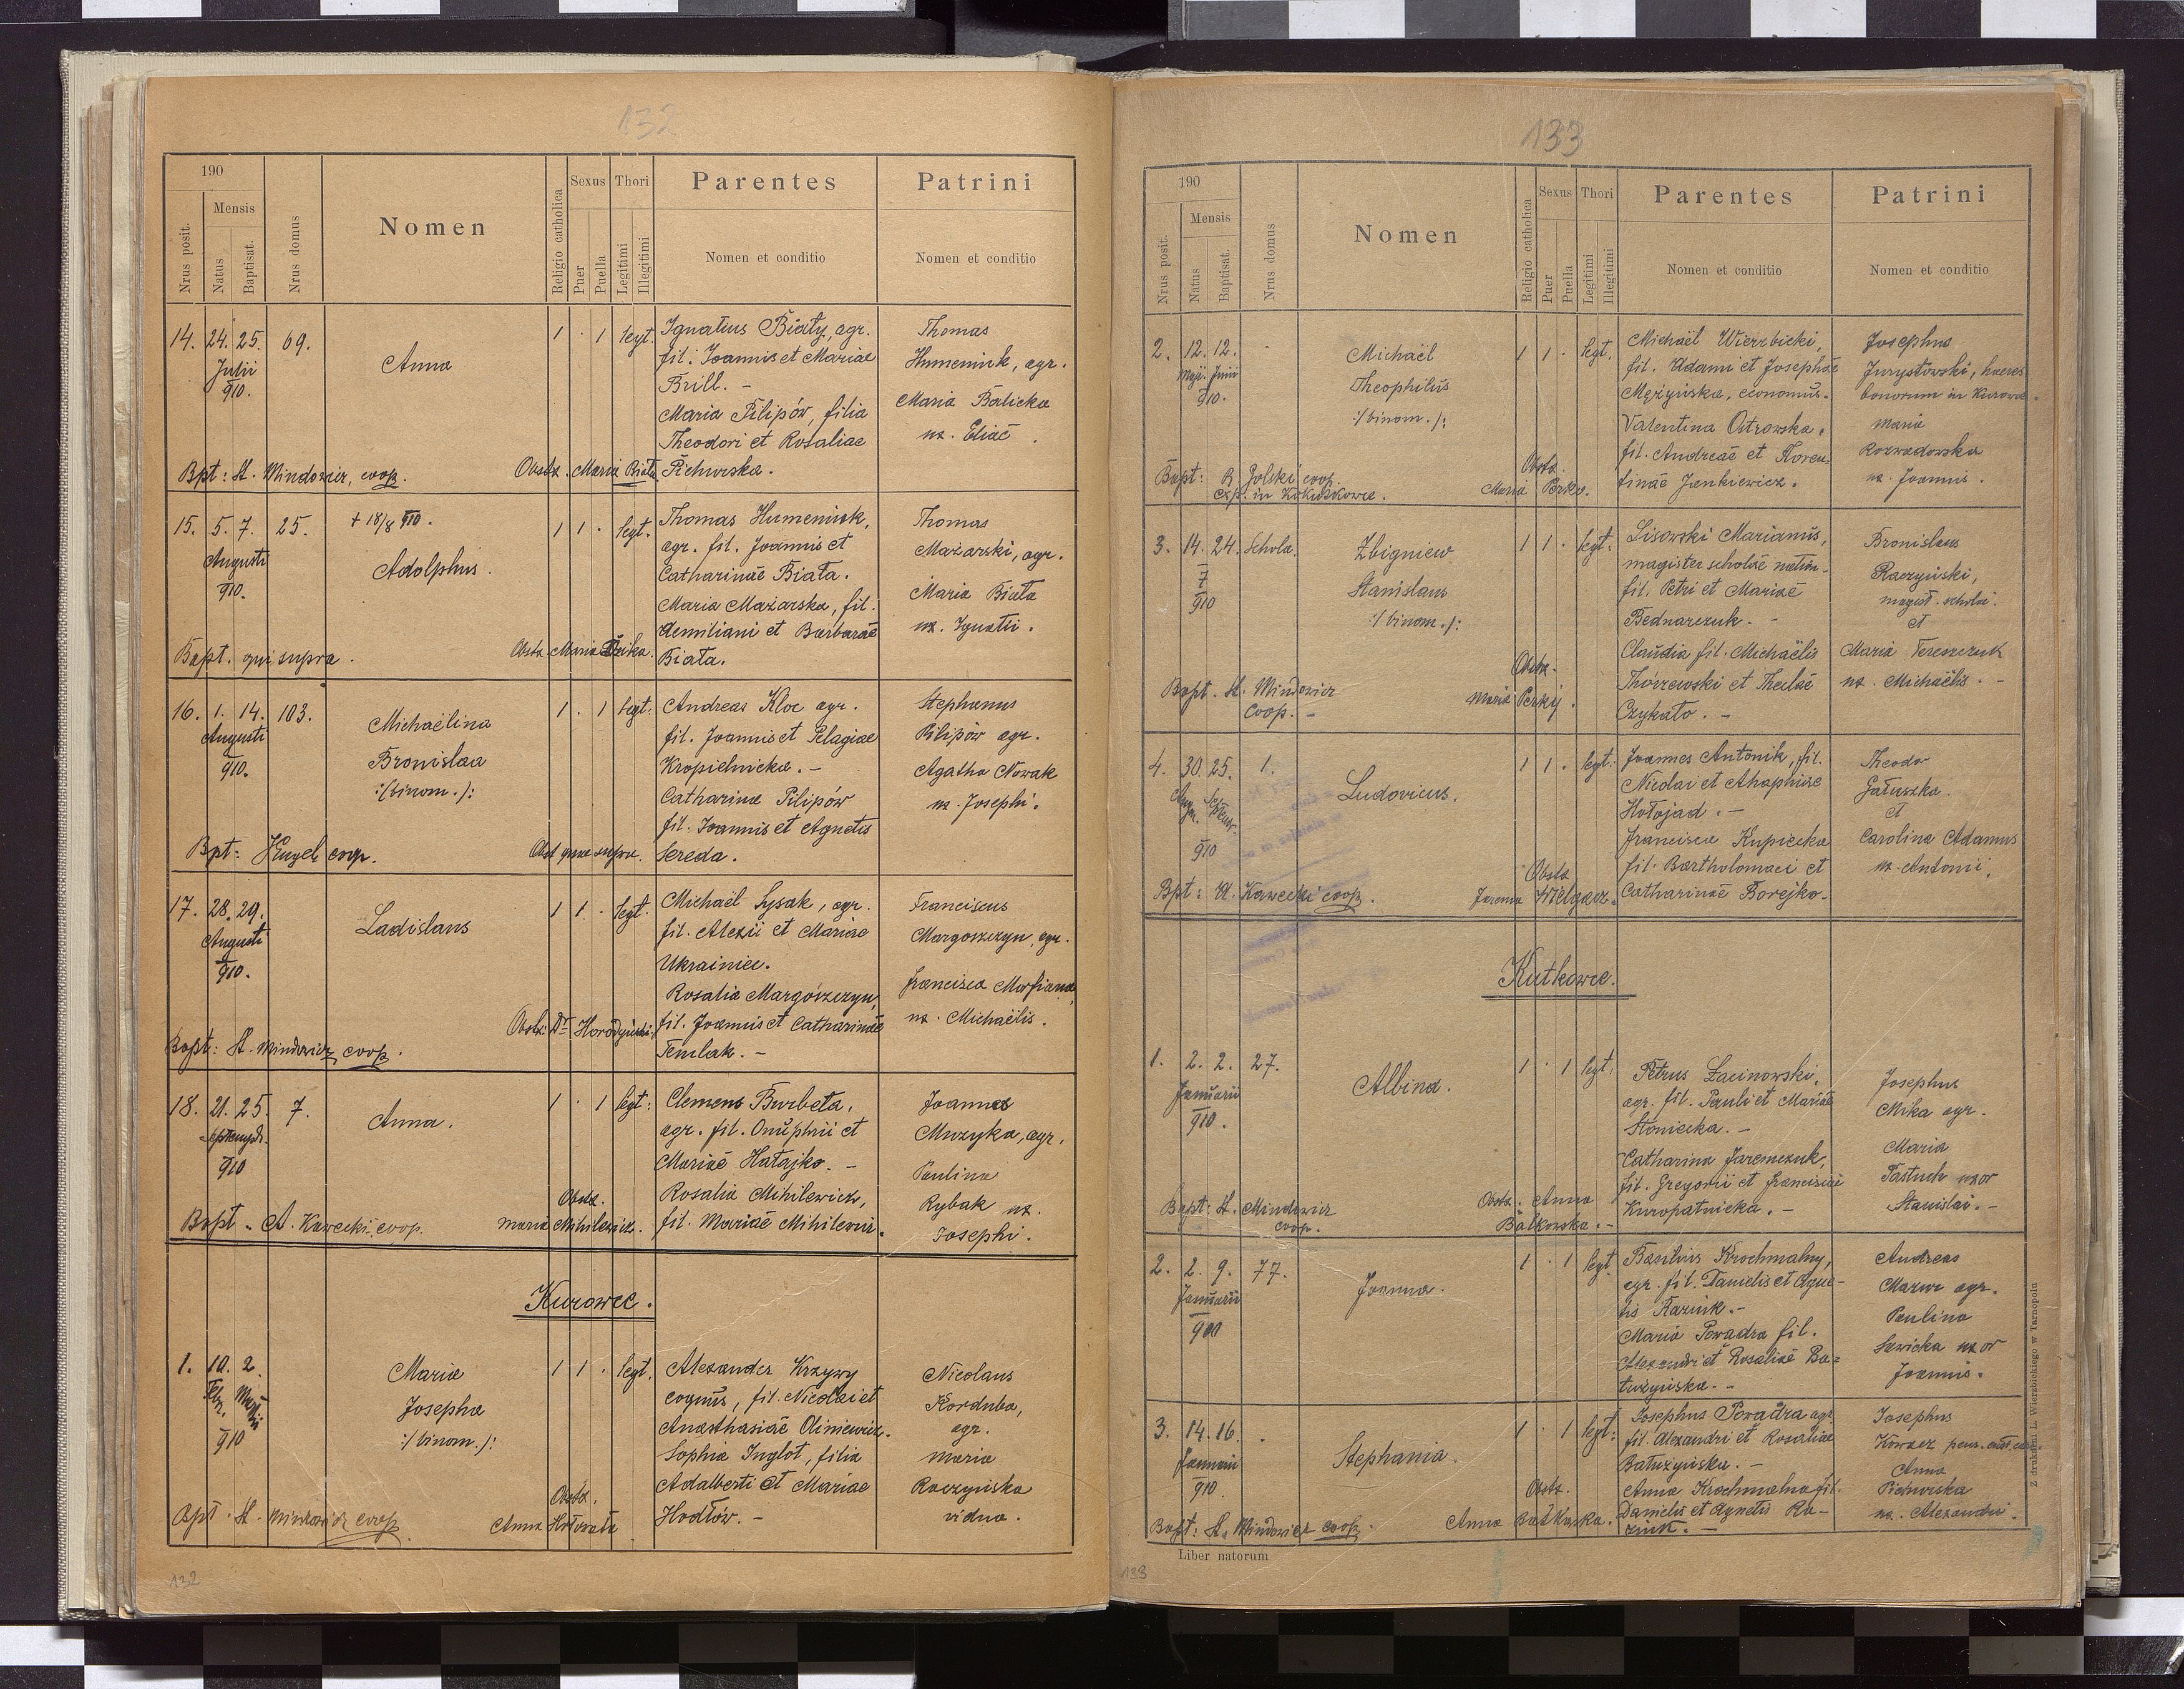 132
190
Mensis
Nrus posit.
Natus
Baptisat.
Nrus domus
Nomen
Religio catholica
Sexus
Puer
Puella
Thori
Legitimi
Illegitimi
Parentes
Nomen et conditio
Patrini
Nomen et conditio
14. 24. 25. 69.
Julii
910.
Anna
1 · 1 legt.
Ignatius Biały, agr.
fil. Joannis et Mariae
Brill. -
Maria Pilipów, filia
Theodori et Rosaliae
Pichurska.
Thomas
Humeniuk, agr.
Maria Balicka
ux. Eliae.
Bpt: St. Mindowicz, coop.
Obstx. Maria Biała
15. 5. 7. 25.
Augusti
910.
+ 18/8 910.
Adolphus.
1 1 · legt.
Thomas Humeniuk,
agr. fil. Joannis et
Catharinae Biała.
Maria Mazarska, fil.
Aemiliani et Barbarae
Biała.
Thomas
Mazarski, agr.
Maria Biała
ux. Ignatii.
Bapt. qui supra.
Obstx. Maria
16. 1. 14. 103.
Augusti
910.
Michaëlina
Bronislaa
:/binom./:
1 · 1 legt.
Andreas Kloc agr.
fil. Joannis et Pelagiae
Kropielnicka. -
Catharina Pilipów
fil. Joannis et Agnetis
Sereda.
Stephanus
Pilipów agr.
Agatha Nowak
ux. Josephi.
Bpt: coop.
Obst quae supra.
17. 28. 29.
Augusti
910.
Ladislaus
1 1 · legt.
Michaël Lysak, agr.
fil. Alexii et Mariae
Ukrainiec.
Rosalia Margoszczyn,
fil. Joannis et Catharinae
Temlak. -
Franciscus
Margoszczyn, agr.
Francisca
ux. Michaëlis.
Bapt: St. Mindowicz coop.
Obstx: Dr Horodyński
18. 21. 25. 7.
Septembr.
910
Anna.
1 · 1 legt:
Clemens Burbeta,
agr. fil. Onuphrii et
Mariae Hałajko. -
Rosalia Mihilewicz,
fil. Mariae Mihilewicz.
Joannes
Muzyka, agr.
Paulina
Rybak ux.
Josephi.
Bapt. A. Kawecki coop.
Obstx.
Maria Mihilewicz.
Kurowce.
1. 10. 2.
Febr. Martii
910
Maria
Josepha
:/binom./:
1 1 · legt.
Alexander Krzywy
coquus, fil. Nicolai et
Anasthasiae Oliniewicz.
Sophia Inglot, filia
Adalberti et Mariae
Hodłów. -
Nicolaus
Korduba,
agr.
Maria
Raczyńska
vidua.
Bpt. St. Mindowicz coop.
Obstx.
Anna Hołowata
132
133
190
Mensis
Nrus posit.
Natus
Baptisat.
Nrus domus
Nomen
Religio catholica
Sexus
Puer
Puella
Thori
Legitimi
Illegitimi
Parentes
Nomen et conditio
Patrini
Nomen et conditio
2. 12. 12. -
Maji Junii
910.
Michaël
Theophilus
:/binom./:
1 1 · legt.
Michaël Wierzbicki,
fil. Adami et Josephae
Mężyńska, economus.
Valentina Ostrowska,
fil. Andreae et Floren-
tinae Jankiewicz.
Josephus
Jurystowski, haeres
bonorum in Kurowce.
Maria
Rozwadowska
ux. Joannis.
Bapt: R. Jolski coop.
exp. in Kokutkowce.
Obstx.
Maria Perko.
3. 14. 24. Schola.
7
910
Zbigniew
Stanislaus
:/binom./:
1 1 · legt.
Lisowski Marianus,
magister scholae
fil. Petri et Mariae
Bednarczuk. -
Claudia fil. Michaëlis
Thorzewski et Theclae
Czykało. -
Bronislaus
Raczyński,
magist. scholae.
et
Maria Tereszczuk
ux. Michaëlis. -
Bapt. St. Mindowicz
Coop. -
Obstx.
Maria Perkij.
4. 30. 25. 1.
Aug. Septembr.
910
Ludovicus.
1 1 · legt:
Joannes Antonik, fil.
Nicolai et Ahaphiae
Hołojad. -
Francisca Kupiecka
fil. Bartholomaei et
Catharinae Borejko.
Theodor
Gałuszka.
et
Carolina Adamus
ux. Antonii.
Bpt: A. Kawecki coop.
Obstx
Wielgacz.
Kutkowce.
1. 2. 2. 27.
Januarii
910.
Albina.
1 · 1 legt.
Petrus Łacinowski,
agr. fil. Pauli et Mariae
Słoniecka. -
Catharina Jaremczuk,
fil. Gregorii et Franciscae
Kuropatnicka. -
Josephus
Mika agr.
Maria
Pastuch uxor
Stanislai. -
Bapt: St. Mindowicz
coop.
Obstx: Anna
Bałkowska. -
2. 2. 9. 77.
Januarii
910
Joanna.
1 · 1 legt
Basilius Krochmalny,
agr. fil. Danielis et Agne-
tis Raziuk. -
Maria Powadra fil.
Alexandri et Rosaliae Ba-
tużyńska. -
Andreas
Mazur agr.
Paulina
Sawicka uxor
Joannis.
3. 14. 16. .
Januarii
910.
Stephania.
1 · 1 legt:
Josephus Powadra agr.
fil. Alexandri et Rosaliae
Batużyńska. -
Anna Krochmalna fil.
Danielis et Agnetis Ra-
ziuk. -
Josephus
Anna
Pichurska
ux. Alexandri.
Bapt: St. Mindowicz coop.
Obstx.
Anna Bałkoska.
Liber natorum
133
Z drukarni L. Wierzbickiego w Tarnopolu